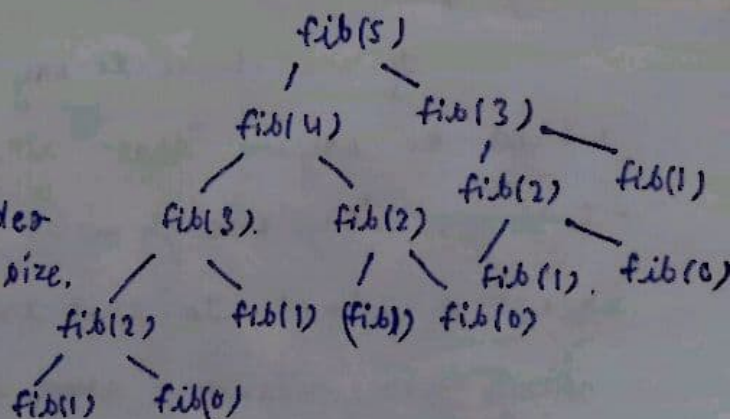 fib(5)
fib(4) fib(3)
fib(2) fib(1)
der fib(3). fib(2)
size. fib(1). fib(0)
fib(2) fib(1) (fib)) fib(0)
fib(1) fib(0)